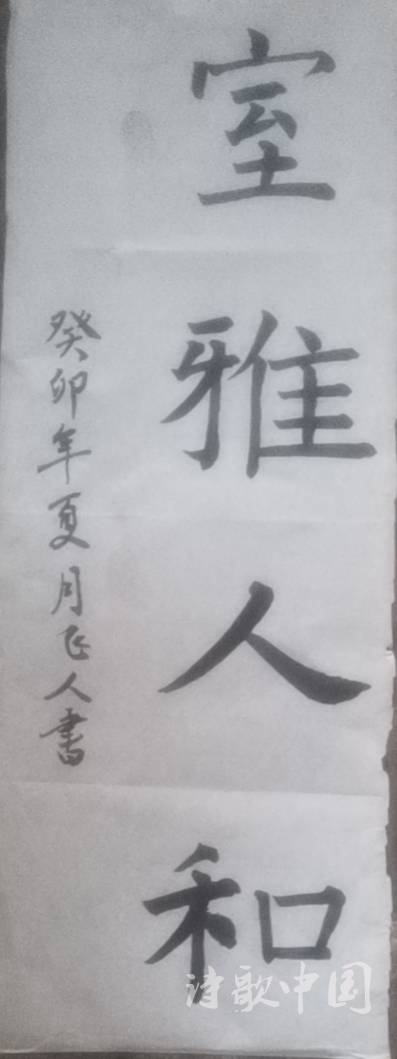 室雅人和
癸卯年夏月飞人書
诗歌中国